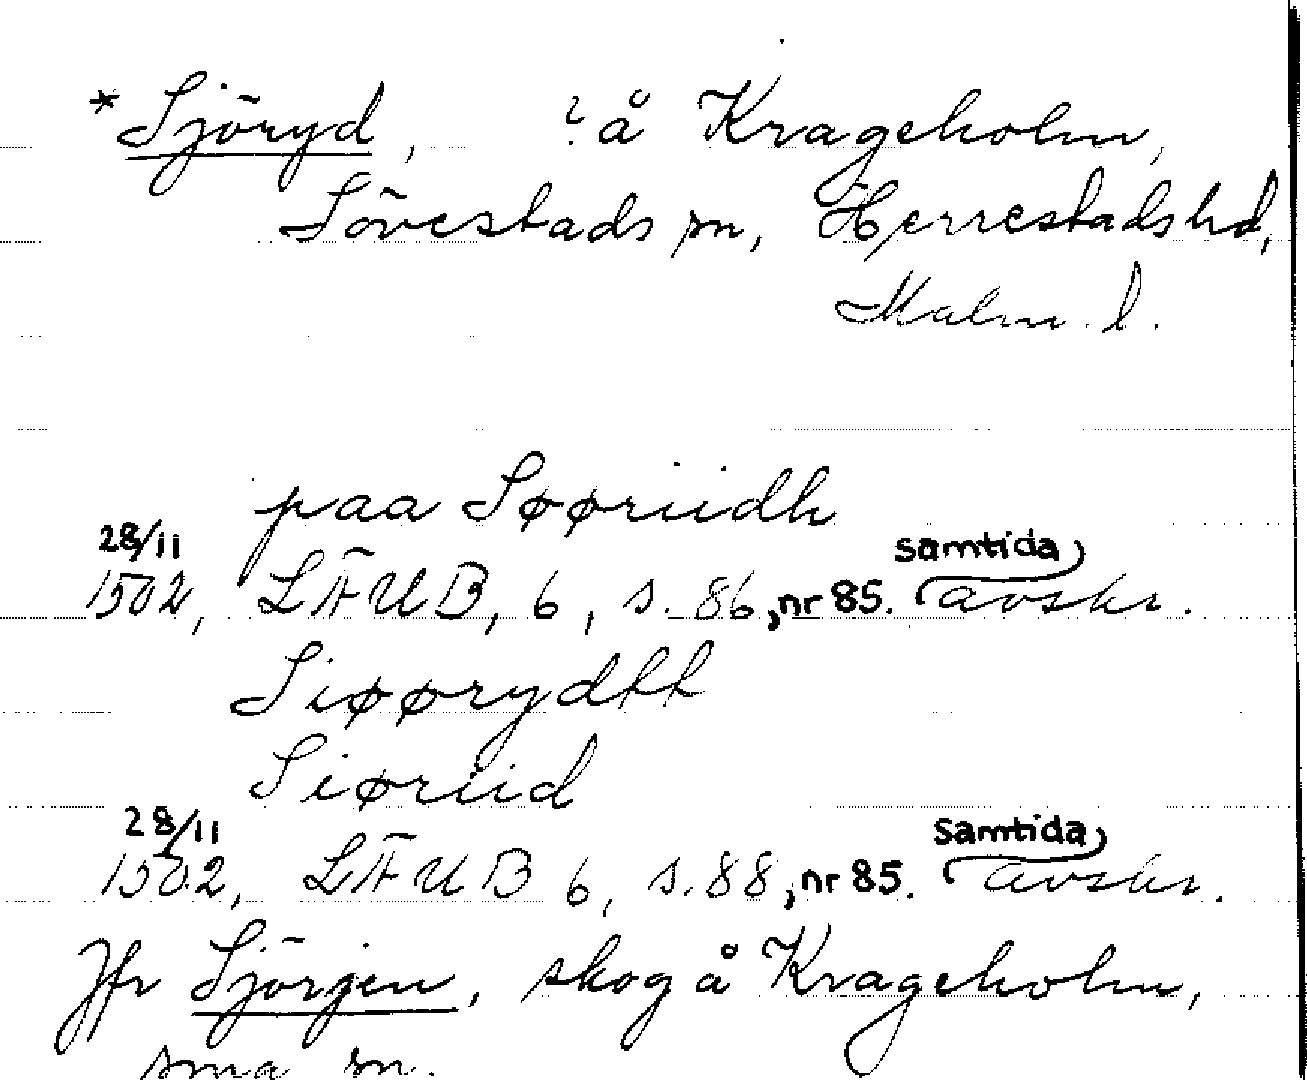 * Sjöryd, ? å Krageholm,
Sövestads sn, Herrestads hd,
Malm. l.
paa Søøriidh
28/11 samtida
1502, LÄUB, 6, s. 86, nr 85. avskr.
Siøørydtt
Siøriid
28/11 samtida
1502, LÄUB 6, s. 88, nr 85. avskr.
Jfr Sjörjen, skog å Krageholm,
sma sn.